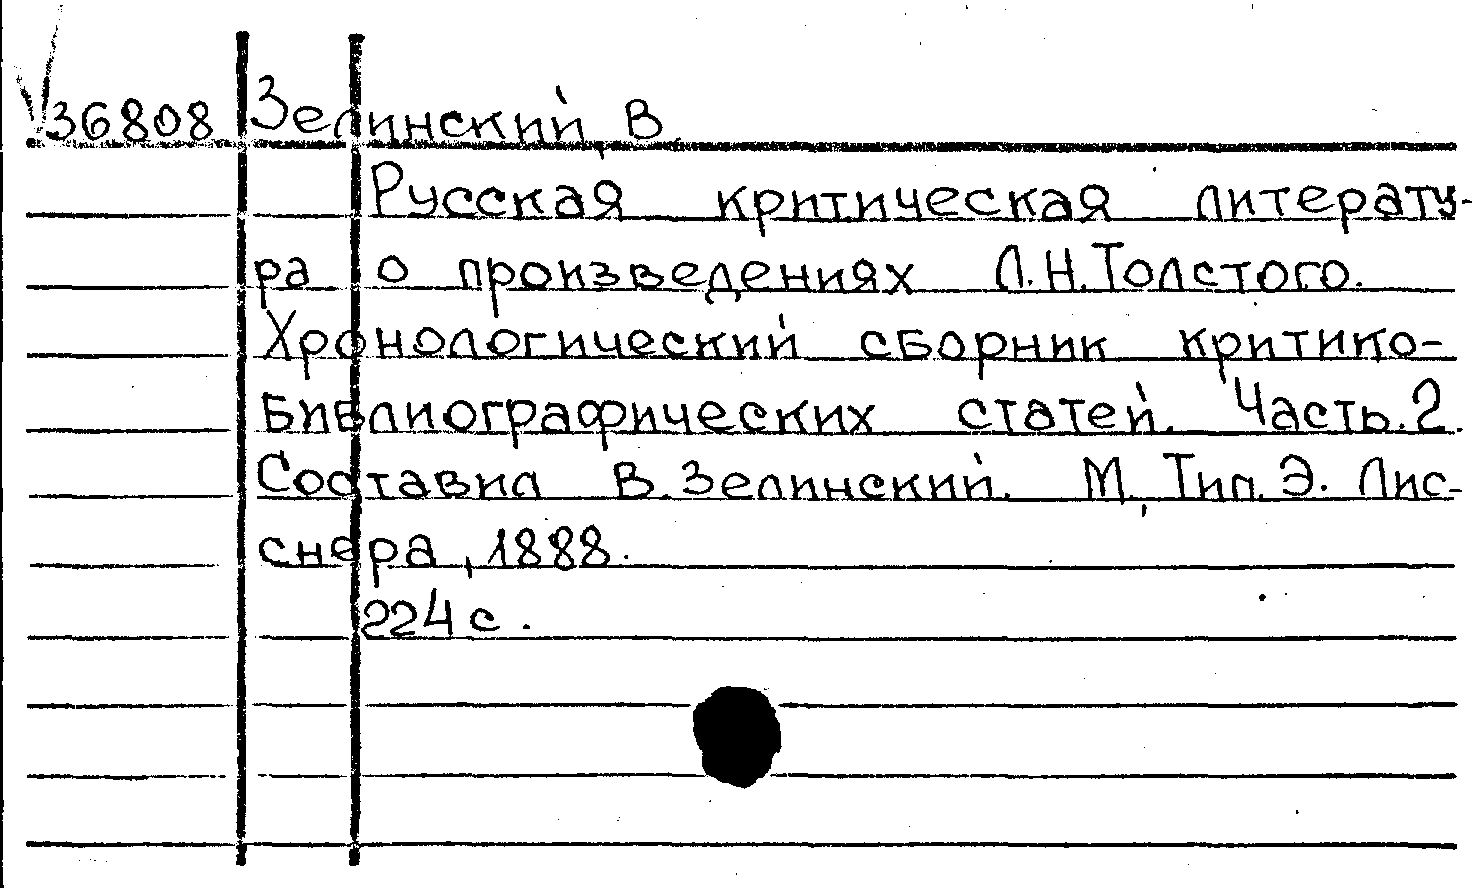 36808 Зелинский, В.
Русская критическая литерату-
ра о произведениях Л.Н.Толстого.
Хронологический сборник критико-
библиографических статей. Часть.2.
Составил В.Зелинский. М., Тип. Э. Лис-
снера, 1888.
224 с.